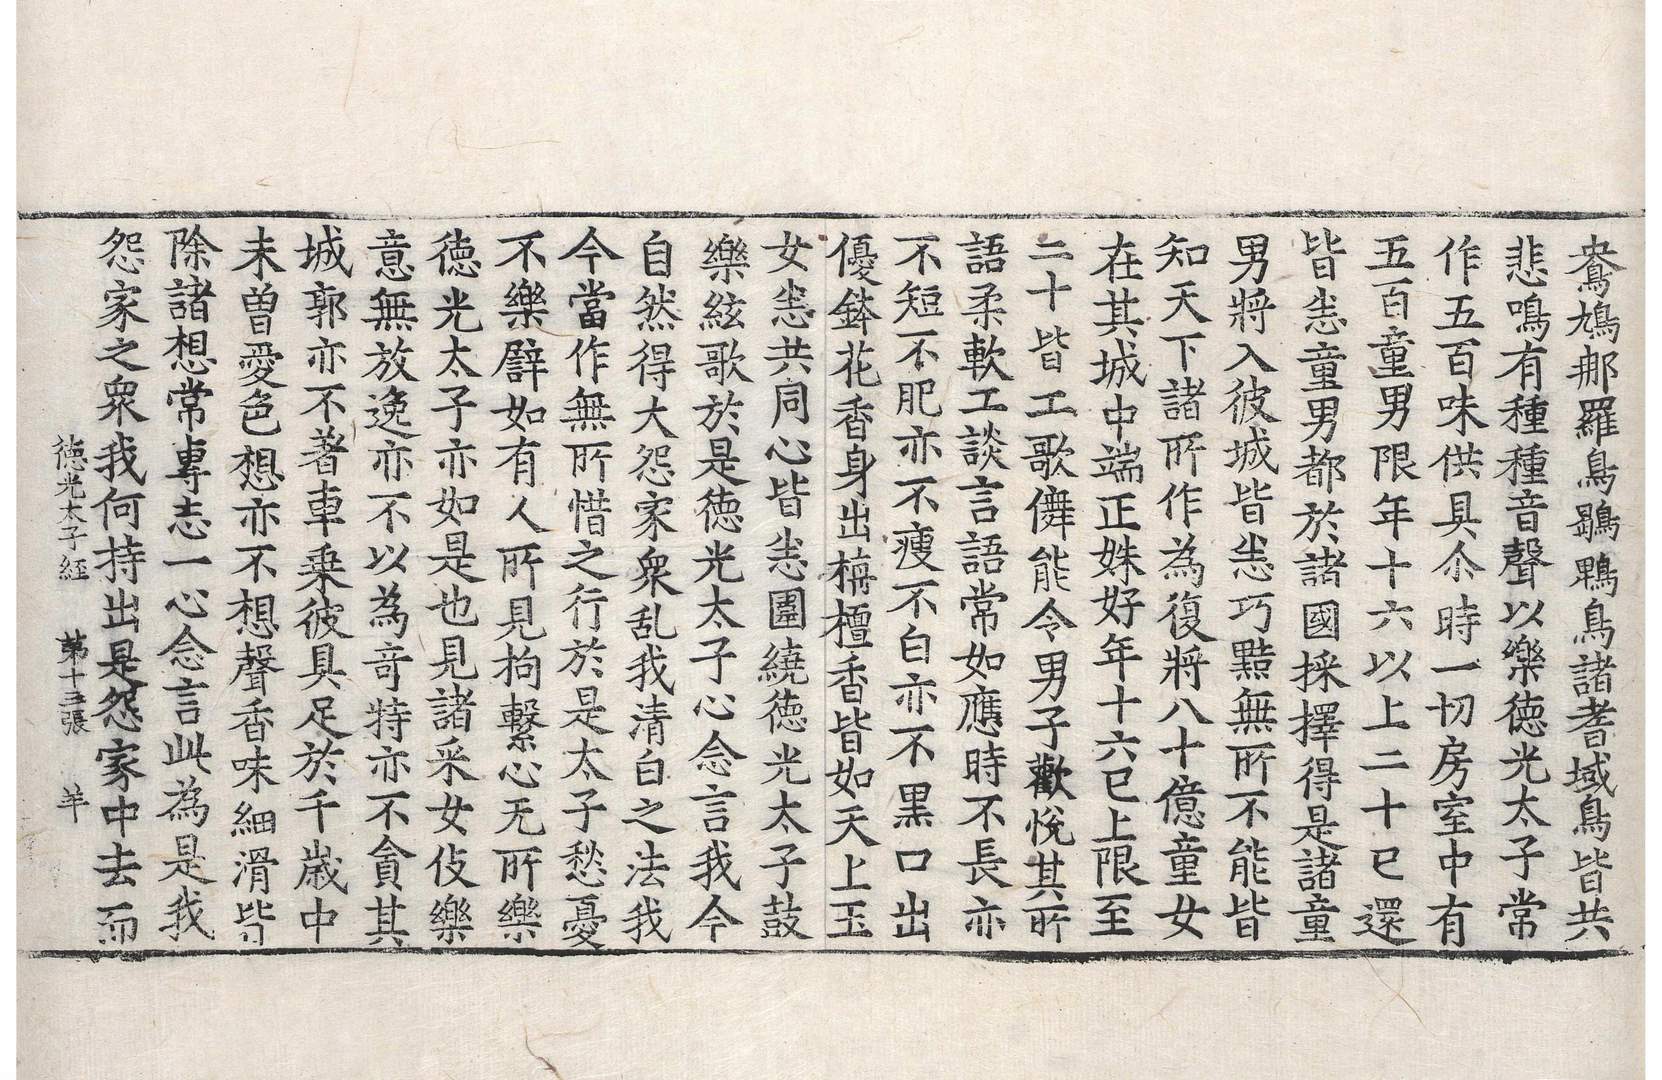 鴦鳩那羅鳥鶡鴨鳥諸耆域鳥皆共
悲鳴有種種音聲以樂徳光太子常
作五百味供具尒時一切房室中有
五百童男限年十六以上二十已還
皆恙童男都於諸國採擇得是諸童
男將入彼城皆恙巧黠無所不能皆
知天下諸所作為復將八十億童女
在其城中端正姝好年十六已上限至
二十皆工歌儛能令男子歡悅其所
語柔軟工談言語常如應時不長亦
不短不肥亦不瘦不白亦不黒口出
優鉢花香身出栴檀香皆如天上玉
女恙共同心皆恙圍繞徳光太子鼓
樂絃歌於是徳光太子心念言我今
自然得大怨家衆乱我清白之法我
今當作無所惜之行於是太子愁憂
不樂譬如有人所見拘繫心无所樂
徳光太子亦如是也見諸采女伎樂
意無放逸亦不以為竒特亦不貪其
城郭亦不著車乗彼具足於千嵗中
未曽愛色想亦不想聲香味細滑皆
除諸想常專志一心念言此為是我
怨家之衆我何持出是怨家中去而
徳光太子経 苐十三張 羊